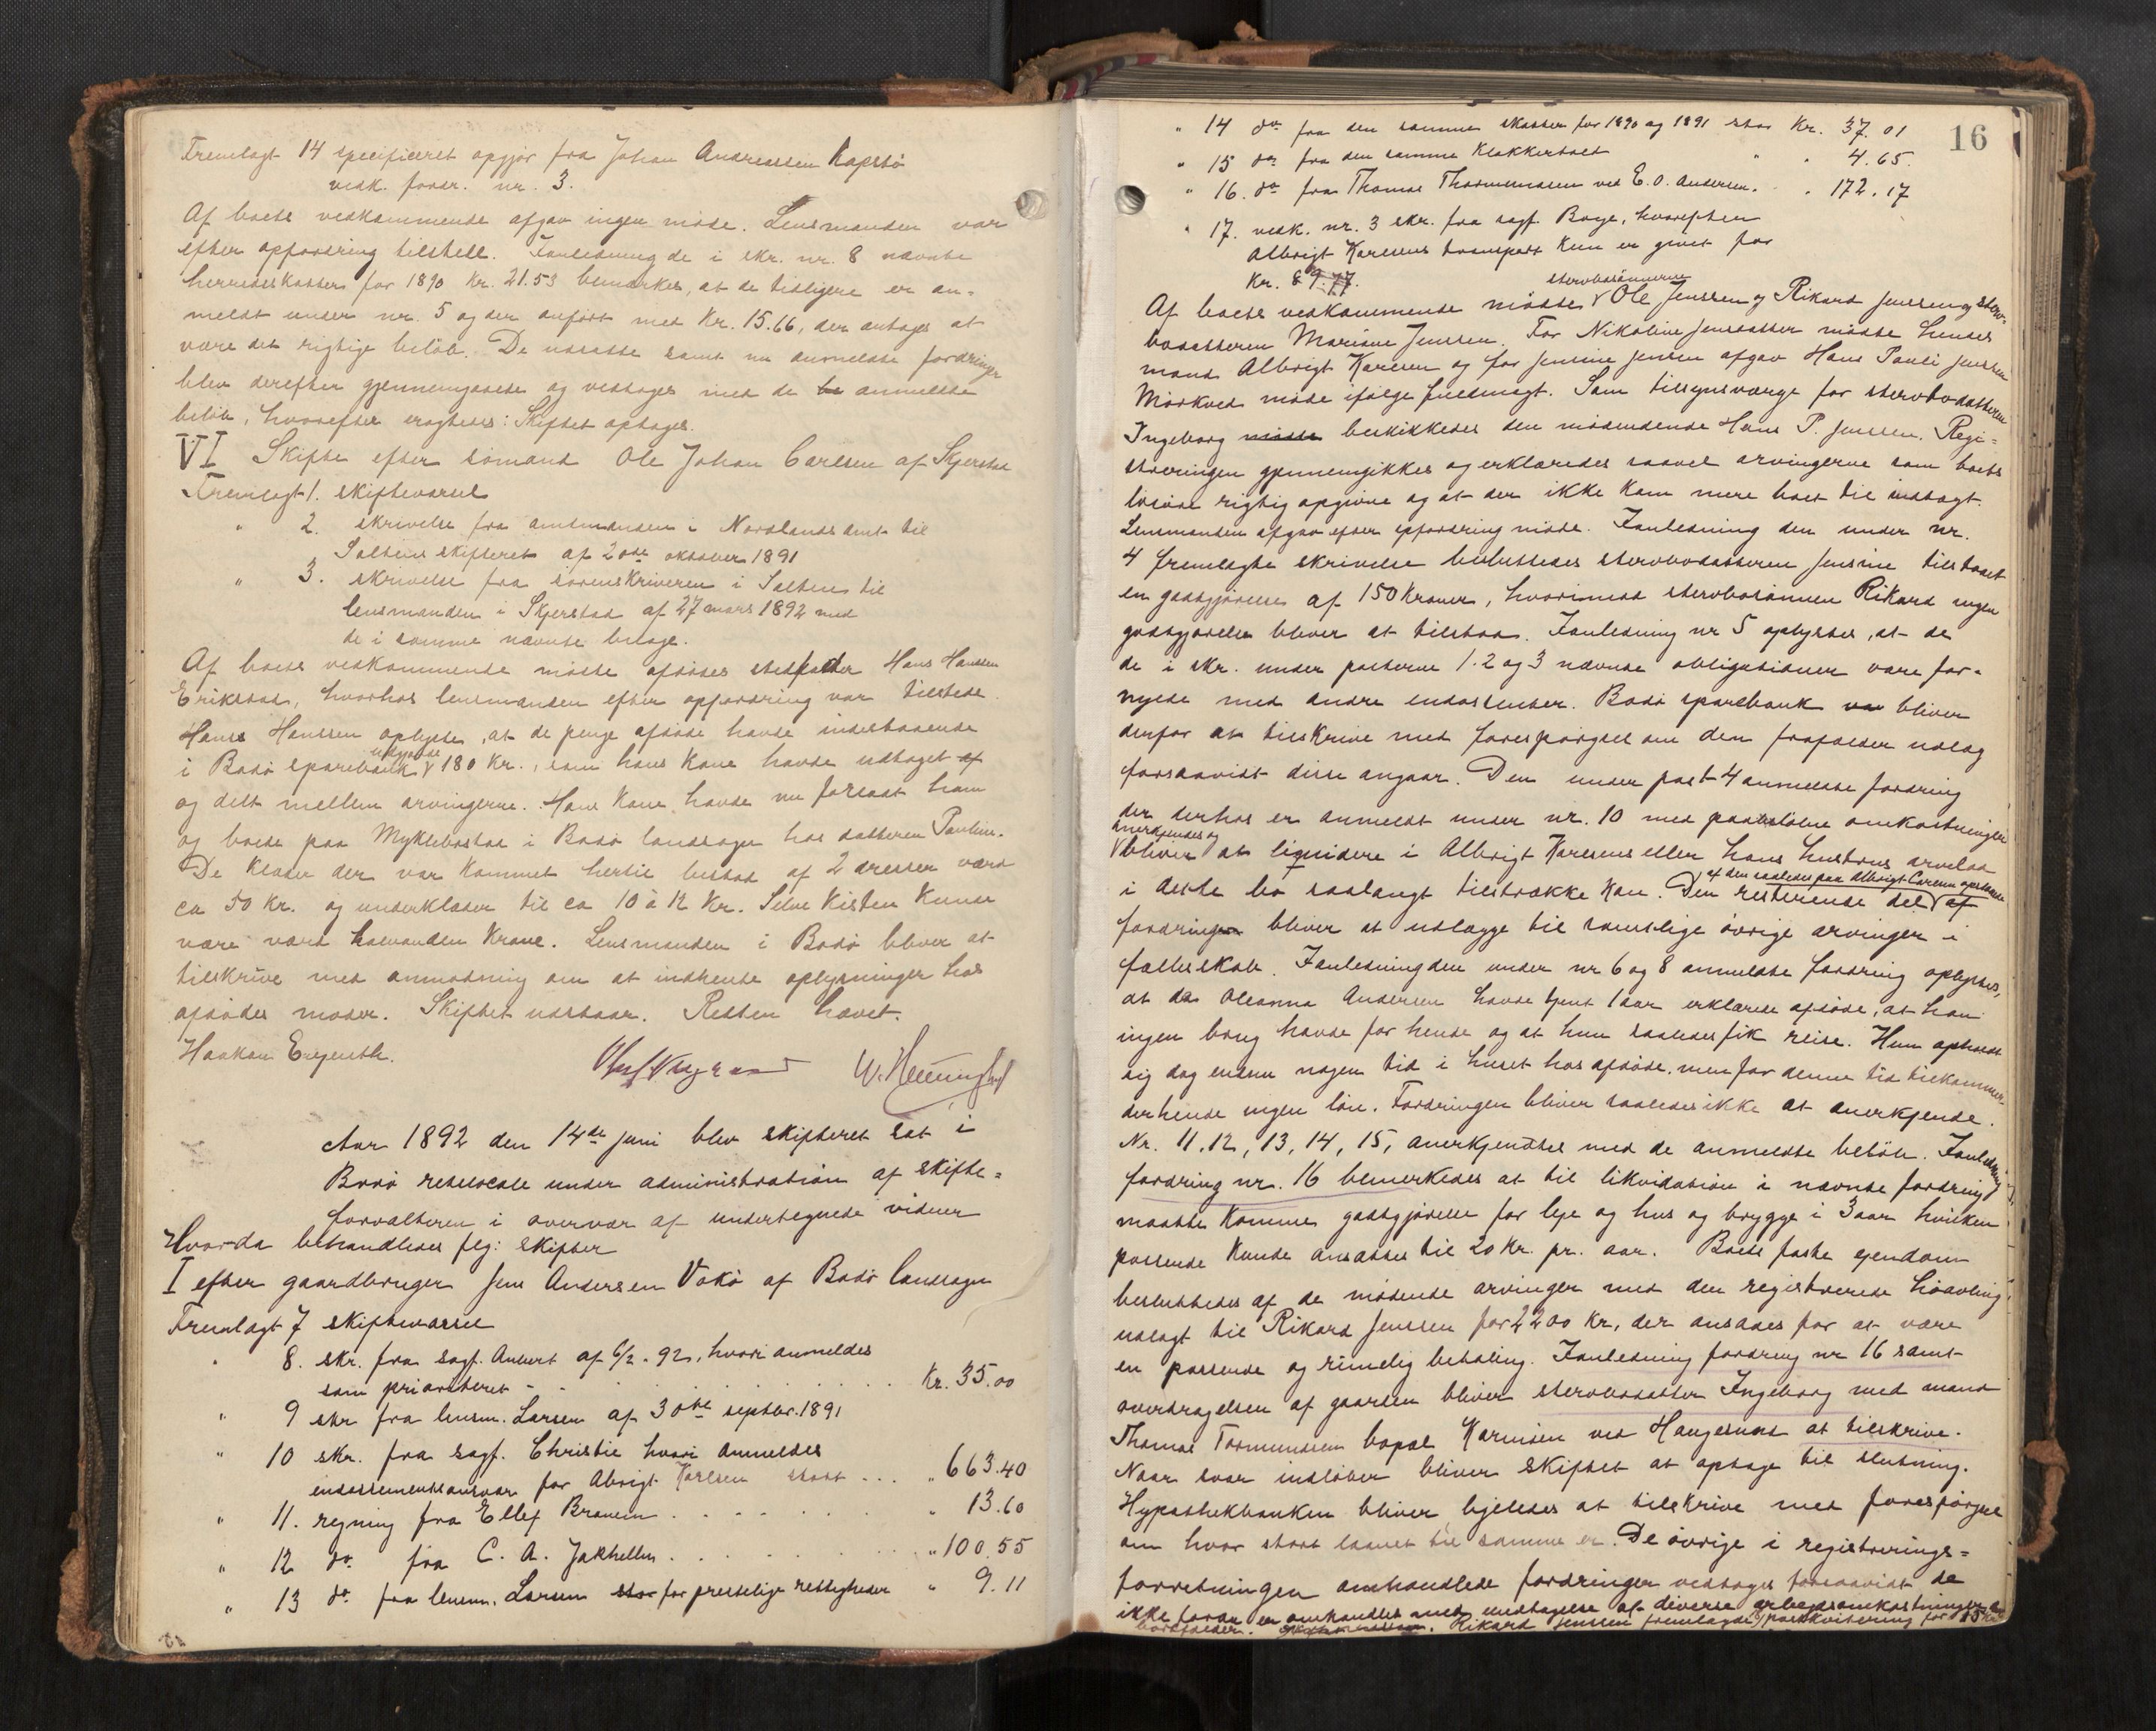 Fremlagt 14 specificeret opgjør fra Johan Andreassen Kapstø
vedk. fordr. nr. 3.
Af boets vedkommende afgav ingen møde. Lensmanden var
efter opfordring tilstede. Ianledning de i skr. nr. 8 nævnte
herredsskatter for 1890 Kr. 21.53 bemærkes, at de tidligere er an-
meldt under nr. 5 og der anført med Kr. 15.66, der antages at
være det rigtige beløb. De udsatte samt nu anmeldte fordringer
blev derefter gjennemgaaede og vedtoges med de anmeldte
beløb, hvorefter eragtedes: Skiftet optages.
VI Skifte efter sømand Ole Johan Carlsen af Skjerstad
Fremlagt 1. skiftevarsel
" 2. skrivelse fra amtmanden i Nordlands amt til
Saltens skifteret af 20de oktober 1891
" 3. skrivelse fra sorenskriveren i Salten til
lensmanden i Skjerstad af 27 mars 1892 med
de i samme nævnte bilage.
Af boets vedkommende mødte afdødes stedfader Hans Hanssen
Erikstad, hvorhos lensmanden efter opfordring var tilstede.
Hans Hanssen oplyste, at de penge afdøde havde indestaaende
i Bodø sparebank udgjorde 180 Kr., som hans kone havde udtaget
og delt mellem arvingerne. Hans kone havde nu forladt ham
og boede paa Myklebostad i Bodø landsogn hos datteren Pauline.
De klæder der var kommet hertil bestod af 2 dresser værd
ca 50 Kr. og underklæder til ca 10 à 12 Kr. Selve kisten kunde
være værd halvanden krone. Lensmanden i Bodø bliver at
tilskrive med anmodning om at indhente oplysninger hos
afdødes moder. Skiftet udstaar. Retten hævet.
Haakon Engenth.
Aar 1892 den 14de juni blev skifteret sat i
Bodø retslocale under administration af skifte-
forvalteren i overvær af undertegnede vidner
Hvorda behandledes flg: skifter
I efter gaardbruger Jens Andersen Vokø af Bodø landsogn
Fremlagt 7 skiftevarsel
" 8. skr. fra sagf. Aubert af 6/2. 92, hvori anmeldes
som prioriteret - . . . . . Kr. 35.00
" 9 skr fra lensm. Larsen af 30te septbr. 1891
" 10 skr. fra sagf. Christie hvori anmeldes
endossementsansvar for Abrigt Karlsen stort ... " 663.40
" 11. regning fra Ellef Braneim . . . . . " 13.60
" 12 do fra C. A. Jakhelln . . . . . " 100.55
" 13 do fra lensm. Larsen for prestelige rettigheder " 9.11
16
" 14 do fra den samme skatter for 1890 og 1891 stor Kr. 37.01
" 15 do fra den samme Klokkertold " " 4.65.
" 16. do fra Thomas Thormundsen ved E. O. Andersen. " 172.17
" 17. vedk. nr. 3 skr. fra sagf. Boye, hvorefter
Albrigt Karlsens transport kun er givet for
Kr. 89.77.
Af boets vedkommende mødte stervbosønnerne Ole Jenssen og Rikard Jenssen og sterv-
bodatteren Mariane Jenssen. For Nikoline Jensdatter mødte hendes
mand Albrigt Karlsen og for Jensine Jensen afgav Hans Pauli Jenssen
Mørkved møde ifølge fuldmagt. Som tilsynsværge for stervbodatteren
Ingeborg beskikkedes den mødendende Hans P. Jenssen. Regi-
streringen gjennemgikkes og erklæredes saavel arvingerne som boets
løsøre rigtig opgivne og at der ikke kom mere boet til indtægt.
Lensmanden afgav efter opfordring møde. Ianledning den under nr.
4 fremlagte skrivelse besluttedes stervbodatteren Jensine tilstaaet
en godtgjørelse af 150 kroner, hvorimod stervbosønnen Rikard ingen
godtgjørelse bliver at tilstaa. Ianledning nr 5 oplystes, at de
de i skr. under posterne 1. 2 og 3 nævnte obligationer vare for-
nyede med andre endossenter. Bodø sparebank bliver
derfor at tilskrive med forespørgsel om den frafalder udlæg
forsaavidt disse angaar. Den under post 4 anmeldte fordring
der derhos er anmeldt under nr. 10 med paaløbne omkostninger
anerkjendes og bliver at liqvidere i Albrigt Karlsens eller hans hustrus arvelod
i dette bo saalangt tilstrække kan. Den resterende del af den saaledes paa Albrigt Carlsen opstaaede
fordring bliver at udlægge til samtlige øvrige arvinger i
fælleskab. Ianledning den under nr 6 og 8 anmeldte fordring oplystes,
at da Oleanna Andersen havde tjent 1 aar erklærede afdøde, at han
ingen brug havde for hende og at hun saaledes fik reise. Hun opholdt
sig dog endnu nogen tid i huset hos afdøde, men for denne tid tilkommer
der hende ingen løn. Fordringen bliver saaledes ikke at anerkjende.
Nr. 11, 12, 13, 14, 15, anerkjendtes med de anmeldte beløb. Ianledning
fordring nr. 16 bemerkedes at til likvidation i nævnte fordring
maatte komme godtgjørelse for leje og hus og brygge i 3 aar hvilken
passende kunde ansættes til 20 Kr. pr. aar. Boets faste ejendom
besluttedes af de mødende arvinger med den registrerede høavling
udlagt til Rikard Jenssen for 2200 Kr, der ansaaes for at være
en passende og rimelig betaling. Ianledning fordring nr 16 samt
overdragelsen af gaarden bliver stervbodatter Ingeborg med mand
Thomas Tormundsen bopæl Karmøen ved Haugesund at tilskrive.
Naar svar indløber bliver skiftet at optage til slutning.
Hypothekbanken bliver ligeledes at tilskrive med forespørgsel
om hvor stort laanet til samme er. De øvrige i registrerings-
forretningen omhandlede fordringer vedtoges forsaavidt de
ikke foran er omhandlet med undtagelse af diverse arbejdsomkostninger
bortfalder. Rikard Jenssen fremlagde